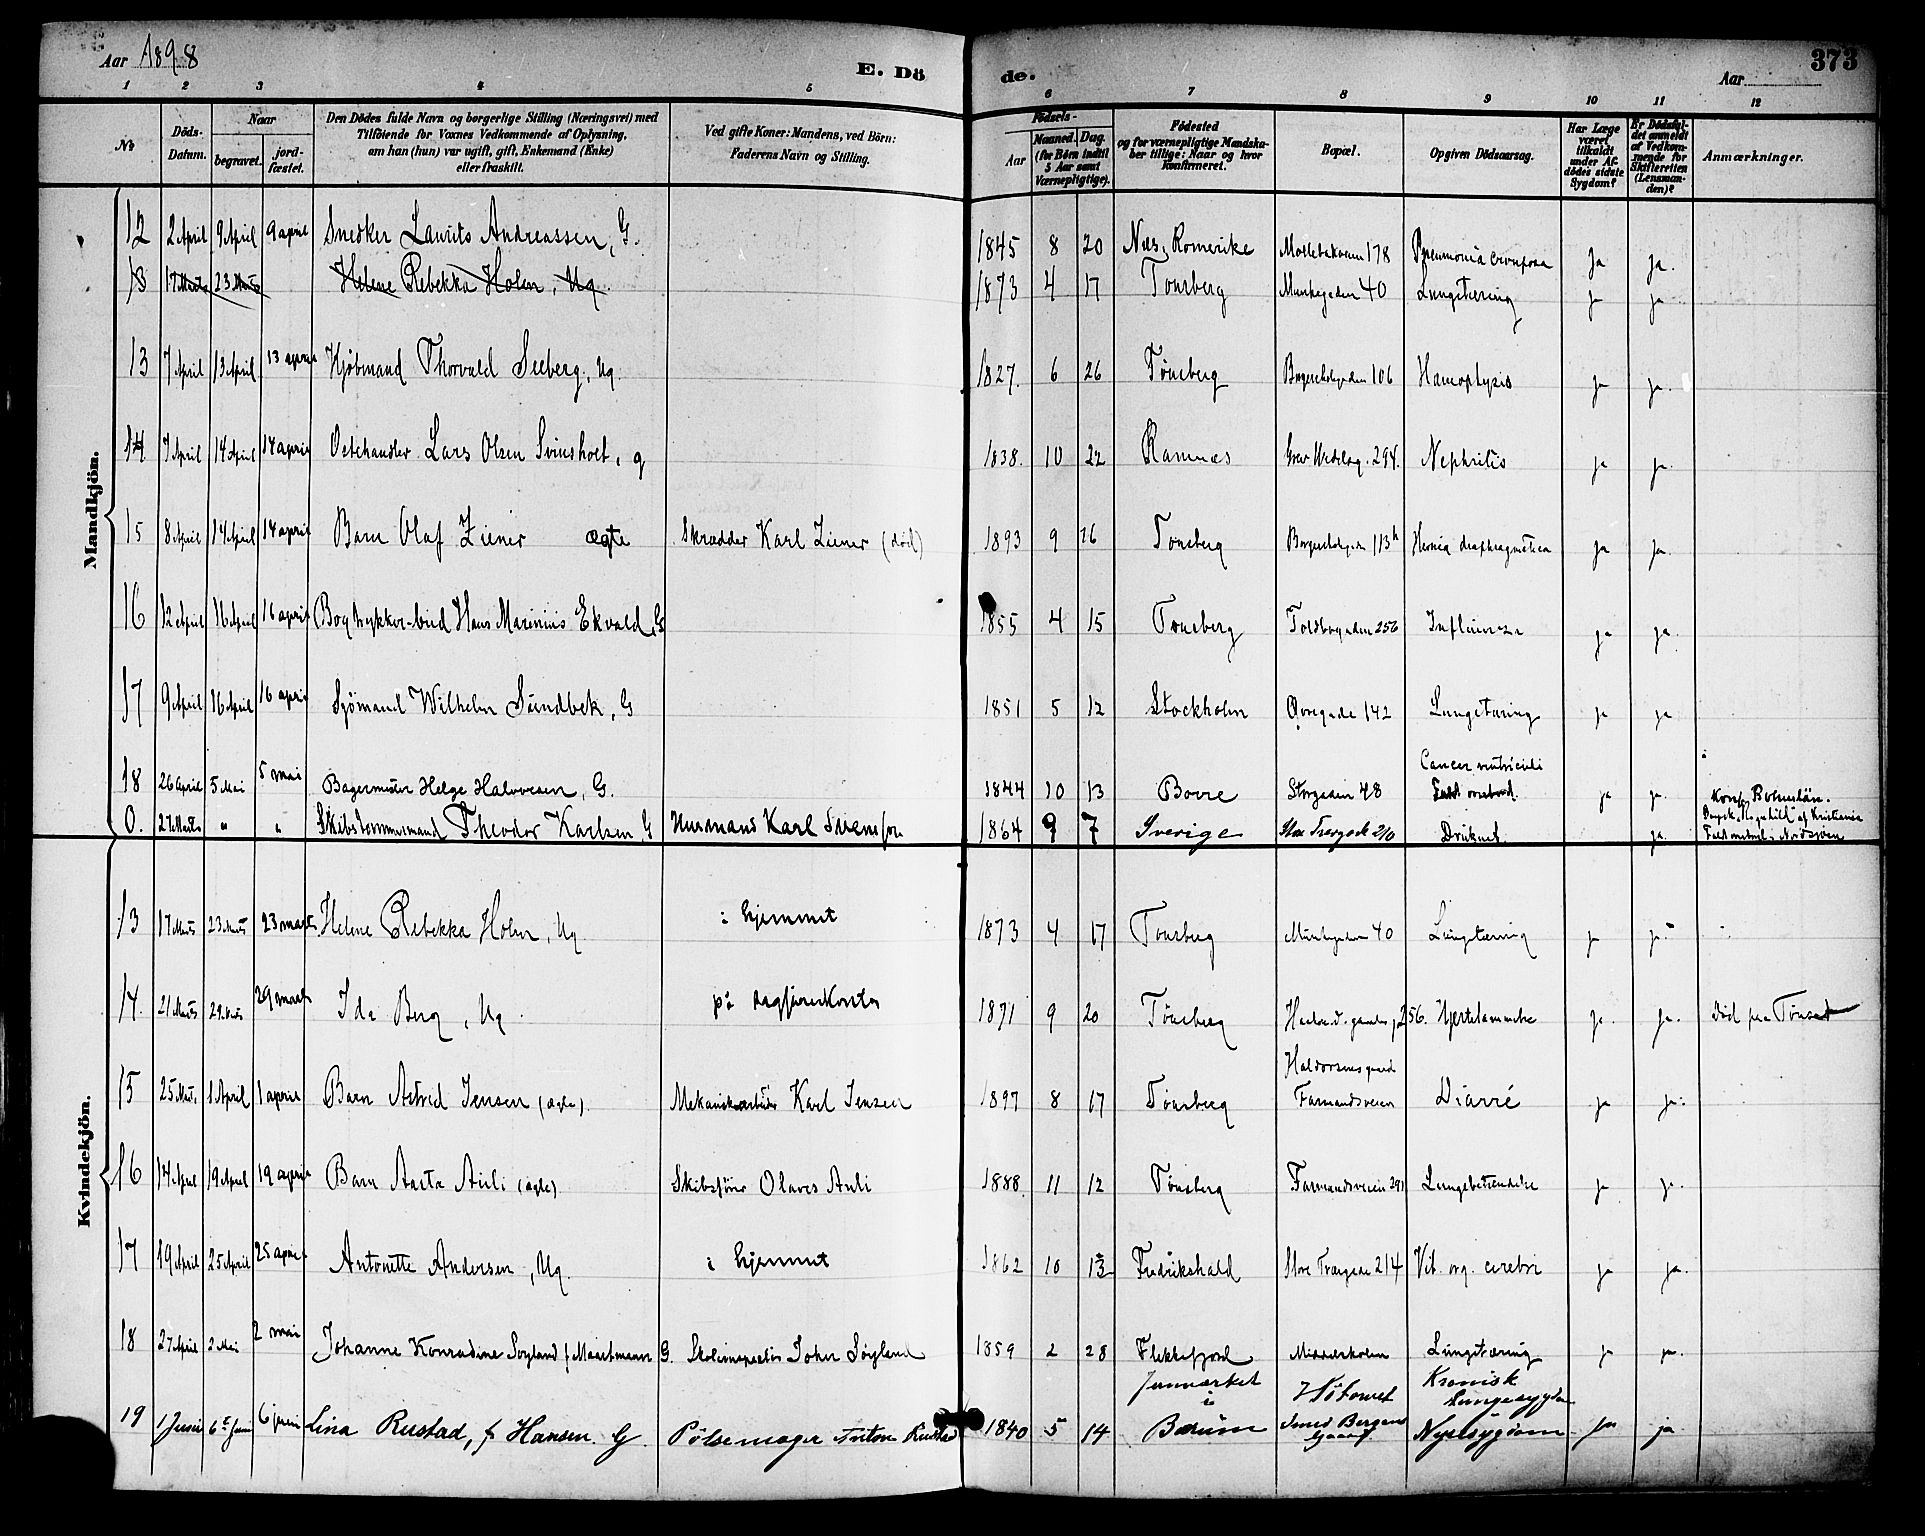 Aar 1898
E. Dö
de.
Aar
373
1 2 3 4 5 6 7 8 9 10 11 12
No
Döds-Datum.
Naar
begravet.
jord-fæstet.
Den Dödes fulde Navn og borgerlige Stilling (Næringsvei) med Tilföiende for Voxnes Vedkommende af Oplysning, om han (hun) var ugift, gift, Enkemand (Enke) eller fraskilt.
Ved gifte Koner: Mandens, ved Börn: Faderens Navn og Stilling.
Födsels-
Aar
Maaned. Dag. (for Börn indtil 5 Aar samt Værnepligtige).
Födested og for værnepligtige Mandskaber tillige: Naar og hvor konfirmeret.
Bopæl.
Opgiven Dödsaarsag.
Har Læge været tilkaldt under Afdödes sidste Sygdom?
Er Dödsfaldet anmeldt af Vedkommende for Skifteretten (Lensmanden)?
Anmærkninger.
Mandkjön.
12 2 April 9 April 9 april Snedker Laurits Andreassen, G. 1845 8 20 Nes, Romerike Møllebakveien 178 Pneumonia crouposa ja ja.
13 17 Marts 23 Marts Helene Rebekka Holm, Ug. 1873 4 17 Tønsberg Munkegaden 40 Lungetæring ja ja
13 7 April 13 April 13 april Kjøbmand Thorvald Seeberg, Ug. 1827. 6 26 Tønsberg 106 Hæmoptysis ja ja.
14 7 April 14 April 14 april Ostehandler Lars Olsen Svinsholt, g 1838. 10 22 Ramnæs Grev Wedelsg. 294. Nephritis ja ja.
15 8 April 14 April 14 april Barn Olaf Ziener ægte Skrædder Karl Ziener (død) 1893 9 26 Tønsberg 113 b Hernia diaphragmatica ja ja.
16 12 April 16 April 16 april Bogtrykker-bud Hans Marinius Ekvald, G 1855 4 15 Tønsberg Toldbodgaden 256 Influenza ja ja.
17 9 April 16 April 16 april Sjømand Wilhelm Sundbek, G 1851 5 12 Stockholm Øvregade 142 Lungetæring ja ja
18 26 April 5 Mai 5 mai Bagermester Helge Halvorsen, G. 1844 10 13 Borre Storgaden 48 Cancer ventriculi ja ja.
0. 27 Marts " " Skibstømmermand Theodor Karlsen G Husmand Karl Svensson 1864 9 7 Sverige Store Trægade 210 Druknet. ja. af Kristiania Faldt overbord i Nordsjøen
Kvindekjön.
13 17 Marts 23 Marts 23 marts. Helene Rebekka Holm, Ug. i hjemmet 1873 4 17 Tønsberg Munkegaden 40 Lungetæring ja ja.
14. 21 Marts 29 Marts 29 marts Ida Berg, Ug. på sagførerkontor 1871 9 20 Tønsberg 256. Hjertelammelse ja. ja. død paa Tønset
15 25 Mts. 1 April 1 april Barn Astrid Jensen (ægte). Mekanikarbeider Karl Jensen 1897 8 17 Tønsberg Haldorsensgaard Farmandsveien Diarré ja ja.
16 14 April 19 April 19 april Barn Aasta Auli (ægte). Skibsfører Olaves Auli 1888. 11 12 Tønsberg Farmandsveien 291 Lungebetændelse ja ja.
17 19 April 25 April 25 april Antonette Andersen, Ug. i hjemmet 1862 10 13 Fredrikshald Store Trægade 214 Vit. org. cerebri ja ja.
18 27 April 2 Mai 2 mai Johanne Konradine Søyland f. Maartmann G. Skoleinspektør John Søyland 1859 2 28 Flekkefjord Middelskolen Lungetæring ja ja.
19 1 Juni 6te Juni 6 juni Lina Rustad, f. Hansen. G. Pølsemager Anton Rustad 1840 5 14 Jernværket i Bærum Smed Bergans Gaard Kronisk Lungesygdom Nyresygdom ja ja